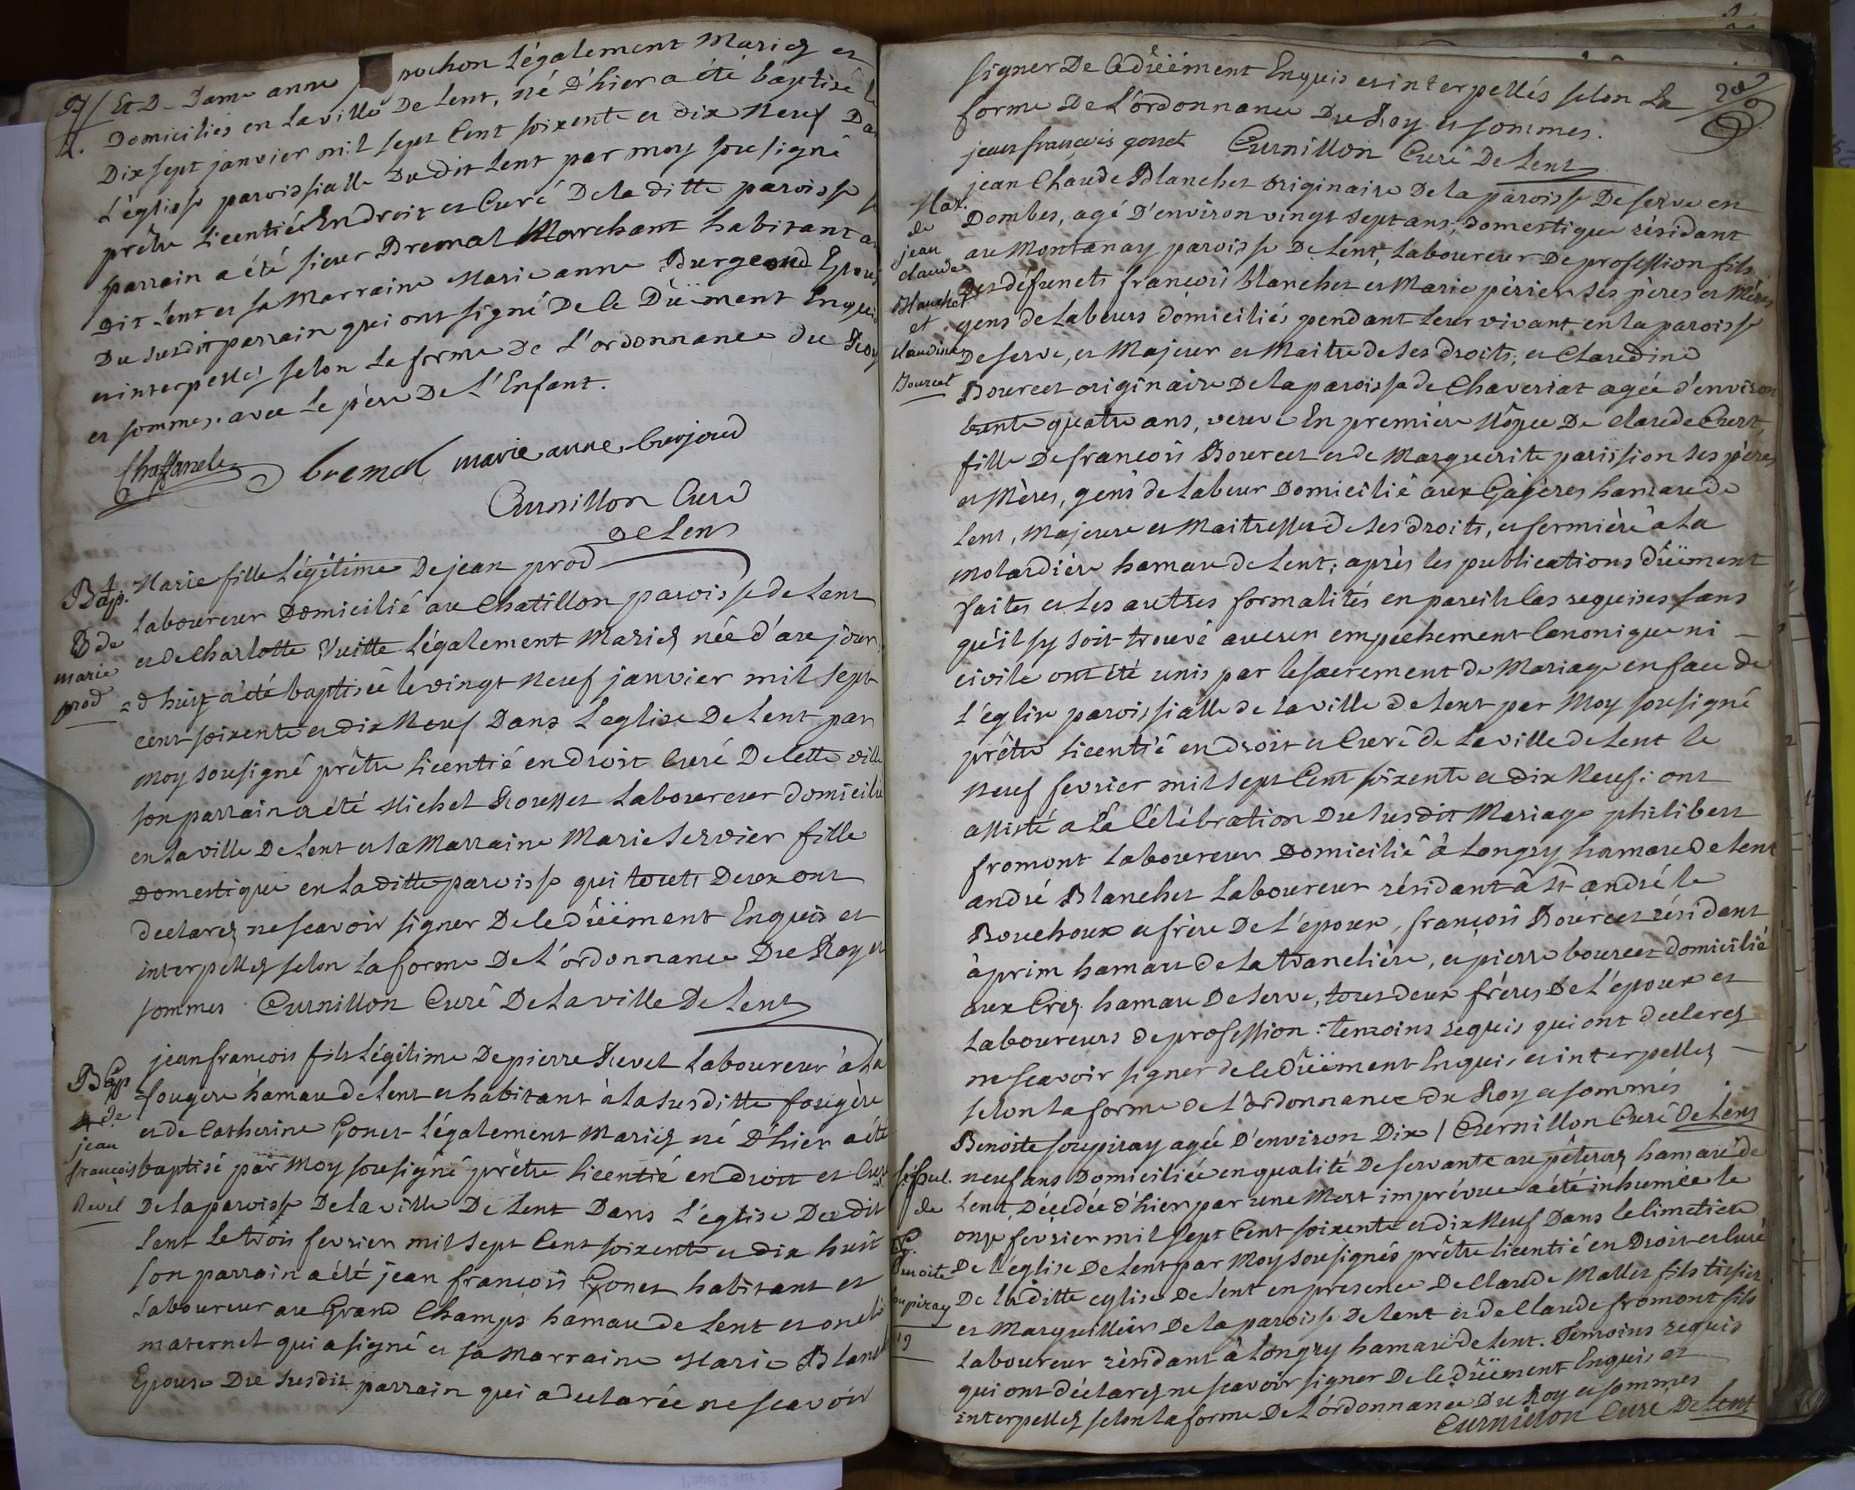 Et D. Dame anne rochon Légalement Mariez et
Domiciliés en La ville De Lent, né D'hier a été baptisé le
Dix sept janvier mil sept Cent soixente et dix Neuf Dans
L'églisse paroissialle Du dit Lent par moy sousigné
prêtre Licentié En droit et Curé De la ditte paroisse
parrain a été sieur Bremal Marchant habitant au
Dit Lent et sa Marraine Marie anne Burgeoud Epouse
Du susdit parrain qui ont signé De ce Düëment Enquis
et interpellez selon La forme De L'ordonnance du Roy
et sommez avec Le père De L'Enfant.
Chaffanel bremal marie anne burjoud
Curnillon Curé
De Lent
Bap.
3 de
marie
prod
Marie fille Légitime De jean prod
Laboureur Domicilié au Chatillon paroisse de Lent
et de Charlotte Vuitte Légalement Mariez née d'au jour
d'huy a été baptisée le vingt Neuf janvier mil sept
cent soixente et dix Neuf Dans L'eglise De Lent par
Moy sousigné prêtre Licentié en droit Curé De cette ville
son parrain a été Michel Rousset Laboureur domicilié
en La ville De Lent et la Marraine Marie Servier fille
Domestique en La ditte paroisse qui touts Deux ont
declarez ne scavoir signer De ce düëment Enquis et
interpellez selon La forme De L'ordonnance Du Roy et
sommes Curnillon Curé De La ville De Lent
Bap
4 de
jean
françois
Revel
jean françois fils Légitime De pierre Revel Laboureur à La
fougere hamau de Lent et habitant à la susditte fougère
et de Catherine Gonet Légalement Mariez né D'hier a été
baptisé par Moy sousigné prêtre Licentié en droit et Curé
De la paroisse De la ville De Lent Dans L'église Du dit
Lent Le trois fevrier mil sept Cent soixente et dix huit
son parrain a été jean françois Gonet habitant et
Laboureur au Grand Champs hamau de Lent et oncle
maternel qui a signé et sa Marraine Marie Blanc
Epouse Du susdit parrain qui a declarée ne scavoir
signer De ce düëment Enquis et interpellés selon La
forme De L'ordonnance Du Roy et sommes.
jean françois gonet Curnillon Curé De Lent
Mar.
de
jean
claude
Blanchet
et
claudine
Bourcet
jean Claude Blanchet originaire De la paroisse De serve en
Dombes, agé D'environ vingt sept ans, domestique résidant
au Montanay paroisse De Lent, Laboureur De profession fils
Des defuncts françois blanchet et Marie périer ses pères et Mères
gens de Labeurs domiciliés pendant Leur vivant en la paroisse
De serve, et Majeur et Maitre de ses droits; et Claudine
Bourcet originaire De la paroisse de Chaveriat agée d'environ
trente quatre ans, veuve En première Nôpce De claude Curt,
fille De françois Bourcet et de Marguerite parission ses pères
et Mères, gens de Labeur Domicilié aux Gagères hamau de
Lent, Majeure et Maitresse de ses droits, et fermière à La
molardière hamau de Lent; après les publications düëment
faites et Les autres formalités en pareils Cas requises sans
qu'il sy soit trouvé aucun empechement Canonique ni
civile ont été unis par le sacrement de Mariage en face de
L'église paroissialle de La ville de Lent par Moy sousigné
prêtre Licentié en droit et Curé de La ville de Lent le
neuf fevrier mil sept Cent soixente et dix Neuf; ont
assisté a La Célébration Du susdit Mariage philibert
fromont Laboureur Domicilié à Longry hamau de Lent
andré Blanchet Laboureur résidant à St andré le
Bouchoux et frère De L'époux, françois Bourcet résidant
à prim hamau de la tranclière, et pierre bourcet domicilié
aux Crez hamau De serve, tous deux frères De L'époux et
Laboureurs de profession: temoins requis qui ont declarez
ne scavoir signer de ce düëment Enquis et interpellez
selon la forme de L'ordonnance du Roy et sommés
Curnillon Curé De Lent
sepul.
de
Benoite
soupiray
19
Benoite soupiray agée D'environ Dix
neuf ans Domiciliée en qualité De servante au hamau de
Lent, Décédée d'hier par une Mort imprévue a été inhumée le
onze fevrier mil sept Cent soixente et dix Neuf Dans le Cimetière
De L'église De Lent par Moy sousignés prêtre Licentié en Droit et Curé
De La ditte eglise De Lent en presence De Claude Mallet fils
et Marguillier De la paroisse De Lent et de Claude fromont fils
Laboureur résidant à Longry hamau de Lent. Temoins requis
qui ont déclarez ne scavoir signer De ce düëment Enquis et
interpellez selon la forme De L'ordonnance Du Roy et sommes
Curnillon Curé De Lent